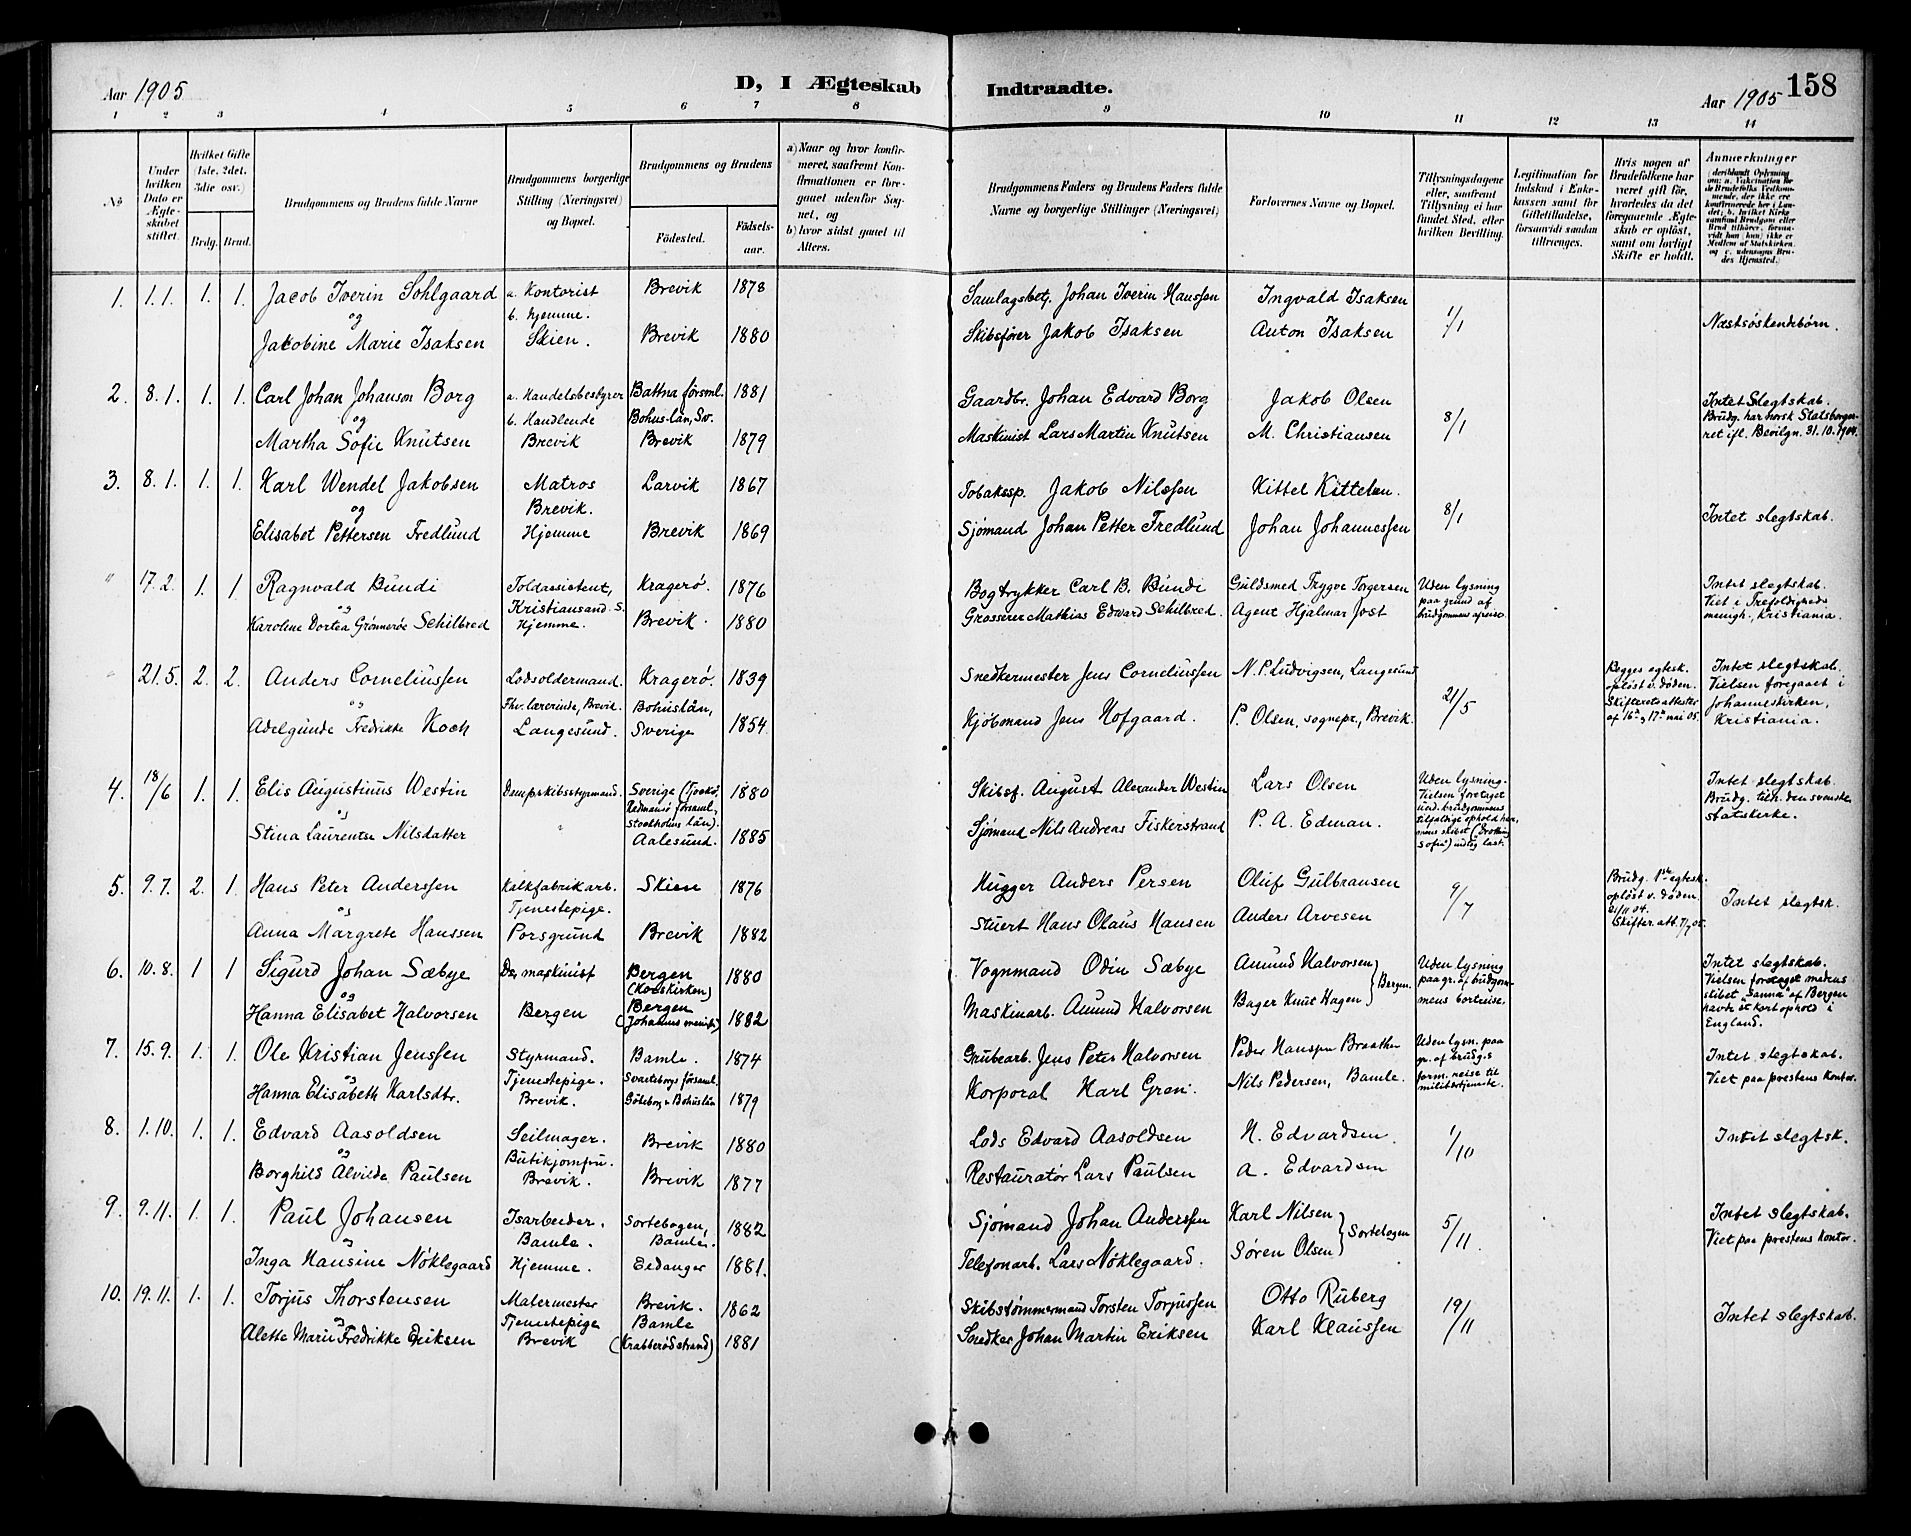 Aar 1905
D, I Ægteskab
Indtraadte.
Aar 1905
158
1 2 3 4 5 6 7 8 9 10 11 12 13 14
No
Under hvilken Dato er Ægteskabet stiftet.
Hvilket Gifte (1ste, 2det, 3die osv.)
Brdg. Brud.
Brudgommens og Brudens fulde Navne
Brudgommens borgerlige Stilling (Næringsvei) og Bopæl.
Brudgommens og Brudens
Fødested.
Fødselsaar.
a) Naar og hvor konfirmeret, saafremt Konfirmationen er foregaaet udenfor Sognet, og
b) hvor sidst gaaet til Alters.
Brudgommens Faders og Brudens Faders fulde Navne og borgerlige Stillinger (Næringsvei)
Forlovernes Navne og Bopæl.
Tillysningsdagene eller, saafremt Tillysning ei har fundet Sted, efter hvilken Bevilling.
Legitimation for Indskud i Enkekassen samt for Giftetilladelse, forsaavidt saadan tiltrænges.
Hvis nogen af Brudefolkene har været gift før, hvorledes da det foregaaende Ægteskab er opløst, samt om lovligt Skifte er holdt.
Anmærkninger (deriblandt Oplysning om: a. Vakcination for de Brudefolks Vedkommende, der ikke ere konfirmerede her i Landet; b. hvilket Kirkesamfund Brudgom eller Brud tilhører, forsaavidt han (hun) ikke er Medlem af Statskirken, og c. udensogns Brudes Hjemsted.)
1. 1.1. 1. 1. Jacob Iverin Sohlgaard a. Kontorist Brevik 1878 Samlagsbetj. Johan Iverin Hanssen Ingvald Isaksen 1/1
og b. hjemme. Næstsøskendebørn.
Jacobine Marie Isaksen Skien. Brevik 1880 Skibsfører Jakob Isaksen Anton Isaksen
2. 8.1. 1. 1. Carl Johan Johanson Borg a. Handelsbestyrer Battna försml. 1881 Gaardbr. Johan Edvard Borg Jakob Olsen 8/1 Intet Slegtskab.
og b. Handlende Bohus-län, Sv. Brudg. har norsk Statsborger-
Martha Sofie Knutsen Brevik Brevik 1879 Maskinist Lars Martin Knutsen M. Christiansen ret ifl. Bevilgn. 31.10.1904.
3. 8.1. 1. 1. Karl Wendel Jakobsen Matros Larvik 1867 Tobakssp. Jakob Nilssen Kittel Kittelsen. 8/1
og Brevik. Intet slegtskab.
Elisabet Pettersen Fredlund Hjemme Brevik 1869 Sjømand Johan Petter Fredlund Johan Johannessen
" 17.2. 1. 1. Ragnvald Bundi Toldassistent, Kragerø. 1876 Bogtrykker Carl B. Bundi Guldsmed Trygve Torgersen Uden lysning Intet slegtskab.
og Kristiansand S. paa grund af Viet i Trefoldigheds
Karoline Dortea Grønnerøe Schilbred Hjemme. Brevik. 1880 Grosserer Mathias Edvard Schilbred. Agent Hjalmar Jost brudgommens afreise. menigh., Kristiania.
" 21.5. 2. 2. Anders Corneliussen Lodsoldermand. Kragerø. 1839 Snedkermester Jens Corneliussen N. P. Ludvigsen, Langesund 21/5 Begges egtesk. Intet slegtskab.
og Fhv. lærerinde, Brevik. Bohuslän, opløst v. døden. Vielsen foregaaet i
Adelgunde Fredrikke Koch Langesund. Sverige 1854. Kjøbmand Jens Hofgaard. P. Olsen, sognepr., Brevik. Skifterets attester af 16de og 17de mai 05. Johanneskirken, Kristiania.
4. 18/6 1. 1. Elis Augustinus Westin Dampskibsstyrmand. Sverige 1880 Skibsf. August Alexander Westin Lars Olsen Uden lysning. Intet slegtskab.
og församl. Stockholms län). Vielsen foretaget und. brudgommens tilfældige ophold her, Brudg. tilh. den svenske
Stina Laurentse Nilsdatter " Aalesund. 1885 Sjømand Nils Andreas Fiskerstrand P. A. Edman. mens skibet (Drotting Sofia) indtog last. statskirke.
5. 9.7. 2. 1. Hans Peter Anderssen Kalkfabrikarb. Skien 1876 Hugger Anders Persen Oluf Gulbransen 9/7 Brudg. 1ste egtesk.
og Tjenestepige. opløst v. døden 21/11 04. Intet slegtsk.
Anna Margrete Hanssen Porsgrund Brevik 1882 Stuert Hans Olaus Hansen Anders Arvesen Skifter. att. 7/7 05.
6. 10.8. 1 1 Sigurd Johan Sæbye Ds. maskinist Bergen (Korskirken) 1880 Vognmand Odin Sæbye Amund Halvorsen Uden lysning Intet slegtskab.
og Bergen. paa gr. af brudgom- Vielsen foretaget medens skibet "Sanna" af Bergen
Hanna Elisabet Halvorsen Bergen Bergen (Johannes menigh.) 1882 Maskinarb. Amund Halvorsen Bager Knut Hagen mens bortreise. havde et kort ophold i England.
7. 15.9. 1. 1. Ole Kristian Jenssen Styrmand. Bamle. 1874 Grubearb. Jens Peter Halvorsen Peder Hanssen Braathen Uden lysn. paa Intet slegtskab.
og Tjenestepige. Svarteborgs församl. gr. af brudg.s form. reise til Viet paa prestens kontor.
Hanna Elisabeth Karlsdtr. Brevik. Göteborg o Bohuslän 1879 Korporal Karl Gren. Nils Pedersen, Bamle. militærtjeneste.
8. 1.10. 1. 1. Edvard Aasoldsen Seilmager. Brevik 1880 Lods Edvard Aasoldsen N. Edvardsen. 1/10 Intet slegtsk.
og Butikjomfru.
Borghild Alvilde Paulsen Brevik. Brevik 1877 Restauratør Lars Paulsen A. Edvardsen
9. 9.11. 1. 1. Paul Johansen Isarbeider. Sortebogen, 1882 Sjømand Johan Anderssen Karl Nilsen 5/11. Intet slegtskab.
og Bamle. Bamle. Sortebogen Viet paa prestens kontor.
Inga Hansine Nøklegaard Hjemme. Eidanger 1881. Telefonarb. Lars Nøklegaard. Søren Olsen
10. 19.11. 1. 1. Torjus Thorstensen Malermester Brevik. 1862 Skibstømmermand Torsten Torjussen Otto Ruberg 19/11
og Tjenestepige Bamle Intet slegtskab.
Alette Marie Fredrikke Eriksen Brevik (Krabberødstrand) 1881 Snedker Johan Martin Eriksen Karl Klaussen